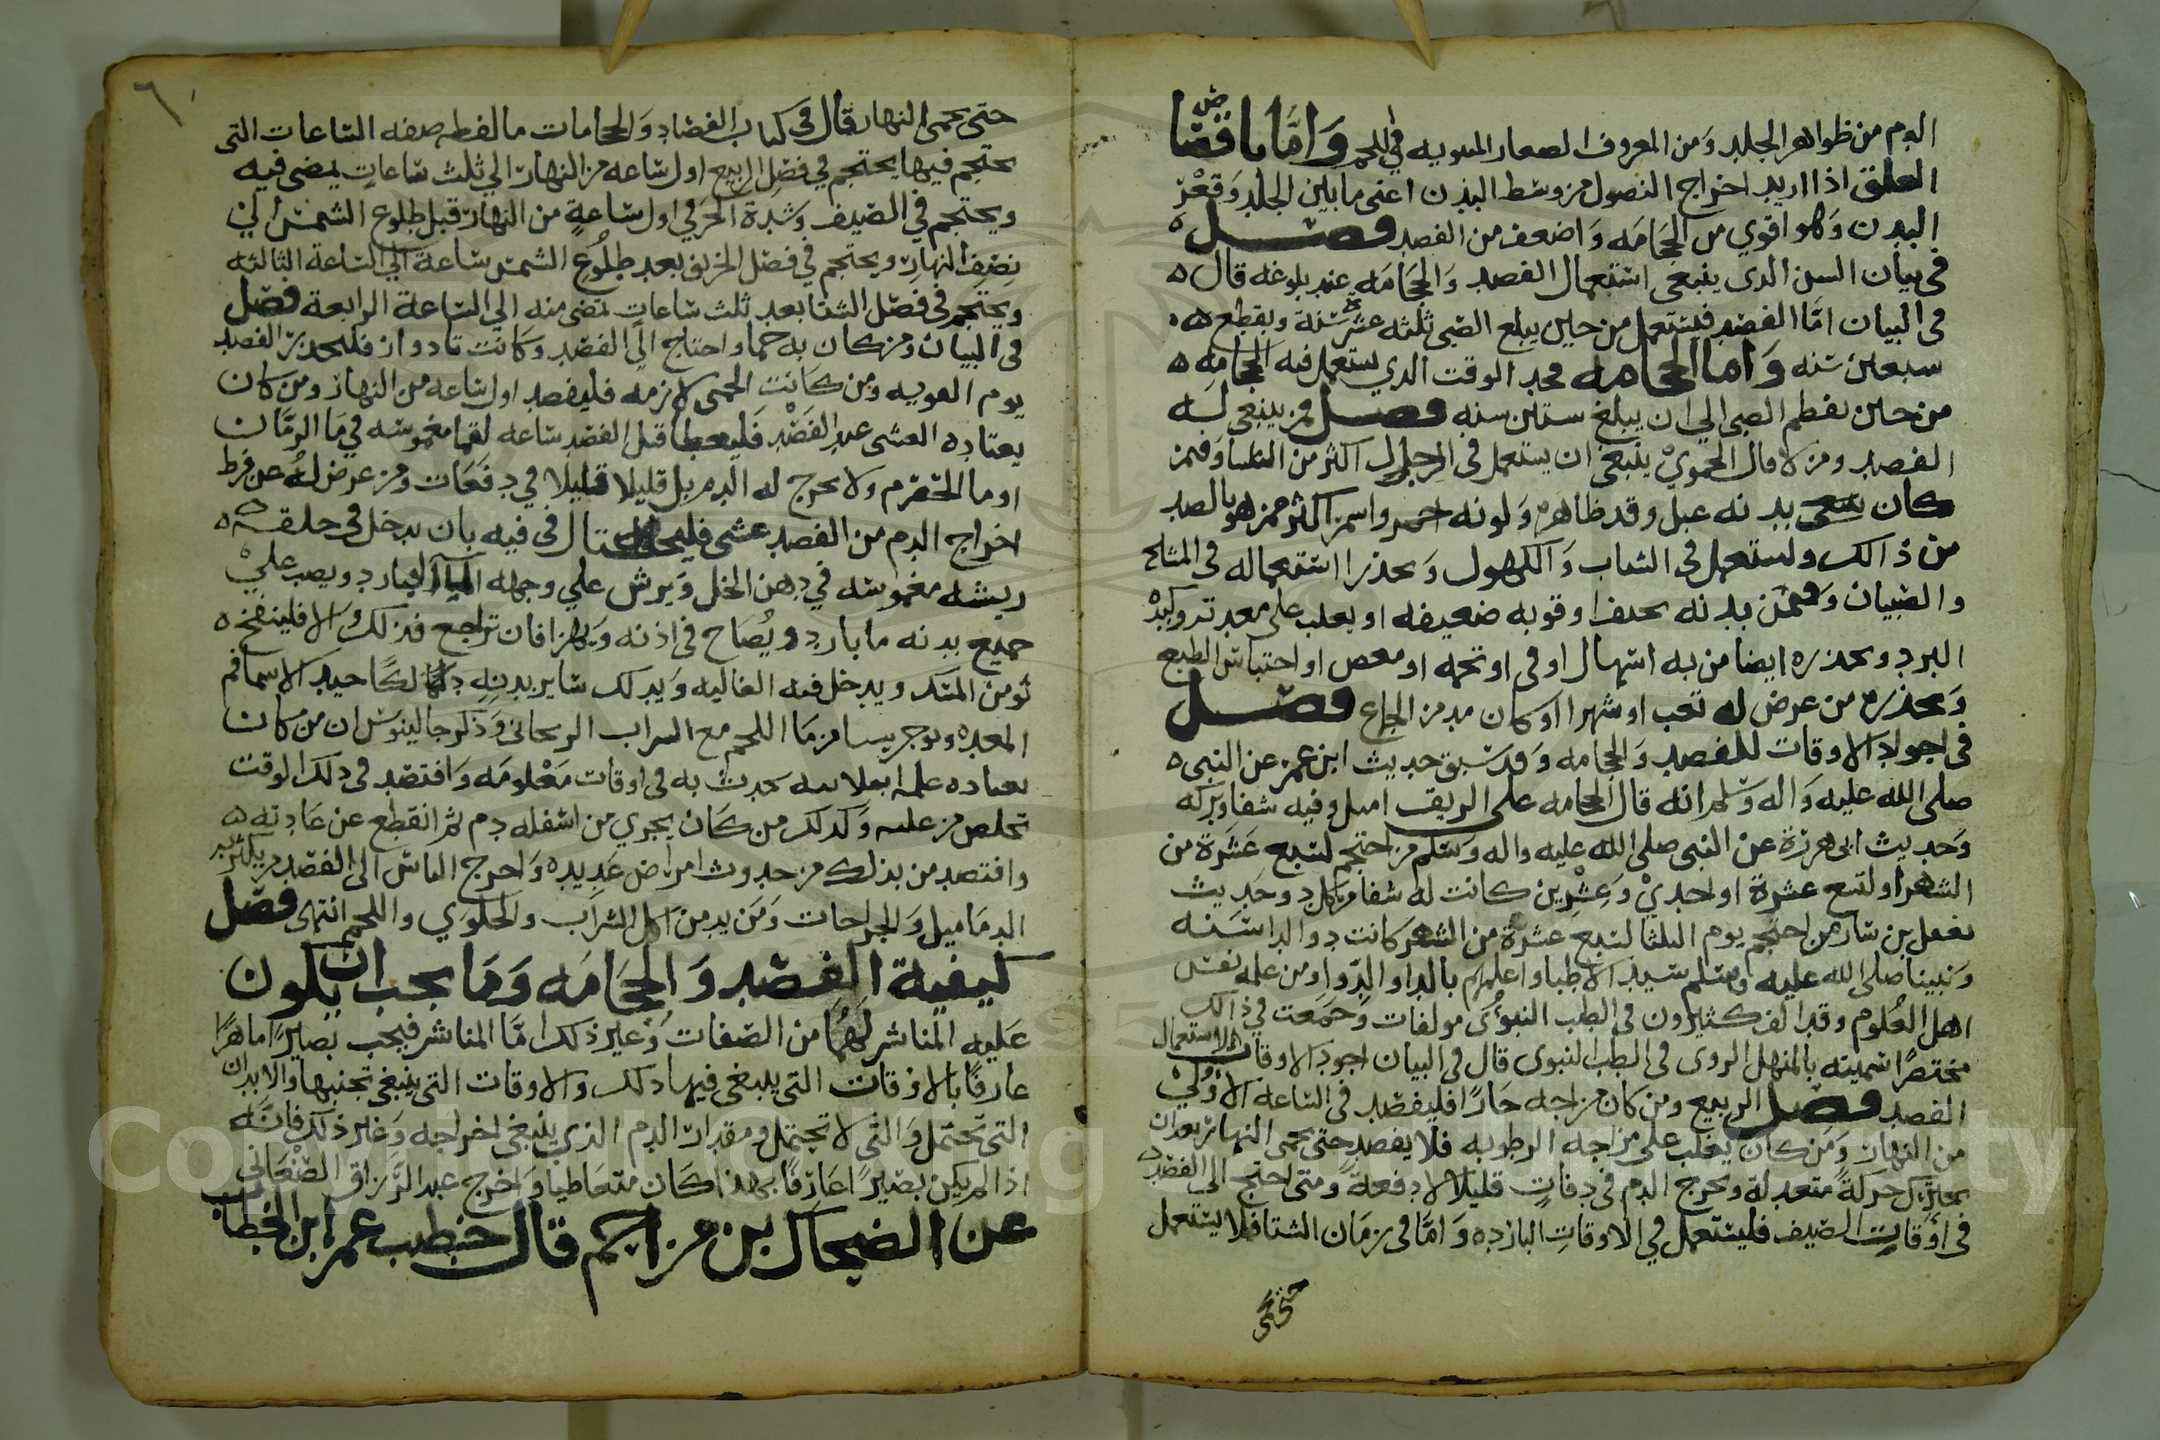 الدم من ظواهر الجلد ومن العروق الصغار المبثوثه في اللحم وَامَّا ما
العلق اذا اريد اخراج الفصول من وسط البدن اعني ما بين الجلد وَقعْر
البدن وَهو اقوي من الحجَامَه وَاضعف من الفصد فصل
في بيان السن الذي ينبغي استعمال الفصد وَالحجَامَه عند بلوغه قال
في البيان امّا الفصد فيستعمل من حين يبلع الصبي ثلثه عشر سَنة ويقطع
سبعين سَنه وَاما الحجامه فحد الوقت الذي يستعمل فيه الحجامه
من حين يفطم الصبي الي ان يبلغ ستين سنه فصل فمن ينبغي له
الفصد ومن لا قال الحموي ينبغي ان يستعمل في الرجال اكثر من النسا وَفمن
كان بدنه عبل وقد ظاهره وَلونه احمر واسمر اكثر ممن هو بالضد
من ذالك ويستعمل في الشباب وَالكهول وَيحذر استعماله في المشايخ
والصبيان وَممن بدنه نحيف وقوته ضعيفه او يغلب علي معدته وكبده
البرد ويحذره ايضا من به اسهال او في او تخمه او مغص او احتباس الطبع
وَيحذره من عرض له تعب او سهر او كان مدمن الجماع فصل
في اجود الاوقات للفصد وَالحجامه وَقد سَبق حديث ابن عمر عن النبي
صلى الله عليه وَاله وَسَلم انه قال الحجامه على الريق امثل وفيه شفا وَبركه
وَحديث ابي هريرة عن النبي صلى الله عليه واله وَسَلم من احتجم لسَبع عَشَرَة من
الشهر او لتسع عشرة او احدي وَعِشْرين كانت له شفا من كل د وحَديث
معقل بن يسَار من احتجم يوم الثلثا لسَبع عشرة من الشهر كانت دوا لدا سَنه
وَنبينا صلى الله عليه وسَلم سَيد الاطبا واعلمهم بالدا والدّوا ومن علمه
اهل العُلوم وقد الف كثيرون في الطب النبوُي مولفات وَجَمَعت في ذالك
مختصرًا سَميته بالمنهل الروي في الطب النبوي قال في البيان اجود الاوقات لاستعمال
الفصد فصل الربيع ومن كان مزاجه حَارًا فليفصد في السَاعه الاوْلي
من النهار وَمَن كان يغلب على مزاجه الرطوبه فلا يفصد حتى يحمي النهار بعد ان
يتحرّك حَركةً معتدلة ويخرج الدم في دفاتٍ قليلًا لا دفعةً ومتى احتج الى الفصد
في اوَقاتِ الصَيف فليسَتعمل في الاوقاتِ البارده وَامَّا في زمَان الشتا فلا يستَعمل
حتى يحمي
حتى يحمي النهار قال في كتاب الفصاد وَالحجامات ما لفظه صفه السَاعات التي
يحتجم فيها يحتجم في فصَل الربيع اول سَاعه من النهار الي ثلث سَاعاتٍ يمضي فيه
ويحتجم في الصَيف وشدَة الحَر في اول سَاعةٍ من النهار قبل طلوع الشمس الي
نصفِ النهارِ ويحتجم في فصَل الخريف بعد طلُوع الشمس سَاعة الي السَاعة الثالثه
ويحتجم في فصَل الشتا بعد ثلث سَاعاتٍ تمضي منه الي السَاعة الرابعة فصل
في البيان ومن كان به حما واحتاج الي الفصد وَكانت تا دوار فليحذر الفصد
يوم النوبه ومن كَانت الحمى لازمه فليفصد اول سَاعه من النهار ومن كان
يعتاده الغشي عند الفَصْد فَليعطا قبل الفصد سَاعه لقما مغموسَه في مَا الرمّان
او ما الحصرم ولا يخرج له الدم بل قليلا قليلا في دفعَات ومن عرض لهُ عن فرط
اخراج الدم من الفصد غشي فليحتال في فيه بان يدخل في حلقه
ريشه مغموسَه في دهن الخل وَيرش علي وجهه الما البارد ويصب علي
جميع بدنه ما بارد ويُصَاح في اذنه وَيهز فان تراجع فذلك والا فلينفخ
ثو من المسَك ويدخل فيه الغاليه وَيدلك سَاير بدنه دلكًا جيد لا سيما فم
المعده ويوجر من مَا اللحم مع الشراب الريحاني وَذكر جالينوس ان من كان
يعتاده عله يحدث به في اوقات مَعْلومَه وَافتصد في ذلك الوقت
تخلص من علته وَكذلك من كَان يجري من اسَفله دم ثم انقطع عن عَادته
وافتصد من بذلك من حدوث امراض عَديده وَاحوج الناس الى الفصد من يكثر به
الدمَاميل وَالجراحات ومَن يدمن اكل الشرَاب والحلوي واللحم انتهى فصل
كيفية الفصَد وَالحِجَامَه وَمَا يجب ان يكون
عَليه المباشر لهُمَا من الصَفات وَغير ذلك امَّا المباشر فيجب بَصيرًا ماهرًا
عارفًا بالاوقات التي ينبغي فيها ذلك والاوقات التي ينبغي تجنبها والابدان
التي تحتمل وَالتي لا تحتمل ومقدار الدم الذي ينبغي اخراجه وَغير ذلك فانّه
اذا لم يكن بصَيرًا عَارفًا بهذا كَان متعَاطيا وَاخرج عبد الرَّزاق الصَنْعَاني
عن الضحاك بن مزاحم قال خطب عمر ابن الخطاب